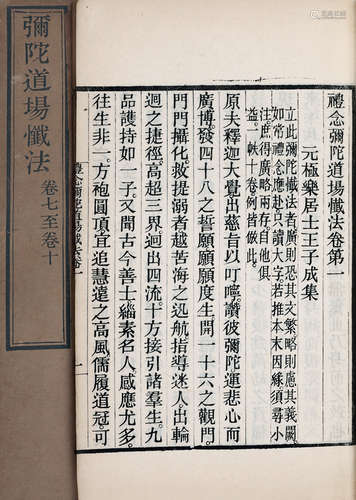 彌陀道場懺法
卷七至卷十
禮念彌陀道場懺法卷第一
元極樂居士王子成集
立此彌陀懺法者廣則恐其文繁略則慮其義闕
如常禮念應赴只讀大字若推本末因緣須尋細
注庶得廣略兩存自他俱
益一十軼例皆倣此
原夫釋迦大覺出慈旨以叮嚀讚彼彌陀運悲心而
廣博發四十八之誓願願願度生開一十六之觀門
門門攝化救提溺者越苦海之迅航指導迷人出輪
迴之捷徑高超三界迴出四流十方接引諸羣生九
品護持如一子又聞古今善士緇素名人感應尤多
往生非一方袍圓頂宜追慧遠之高風儒履道冠可
禮念彌陀道場懺法卷一
一